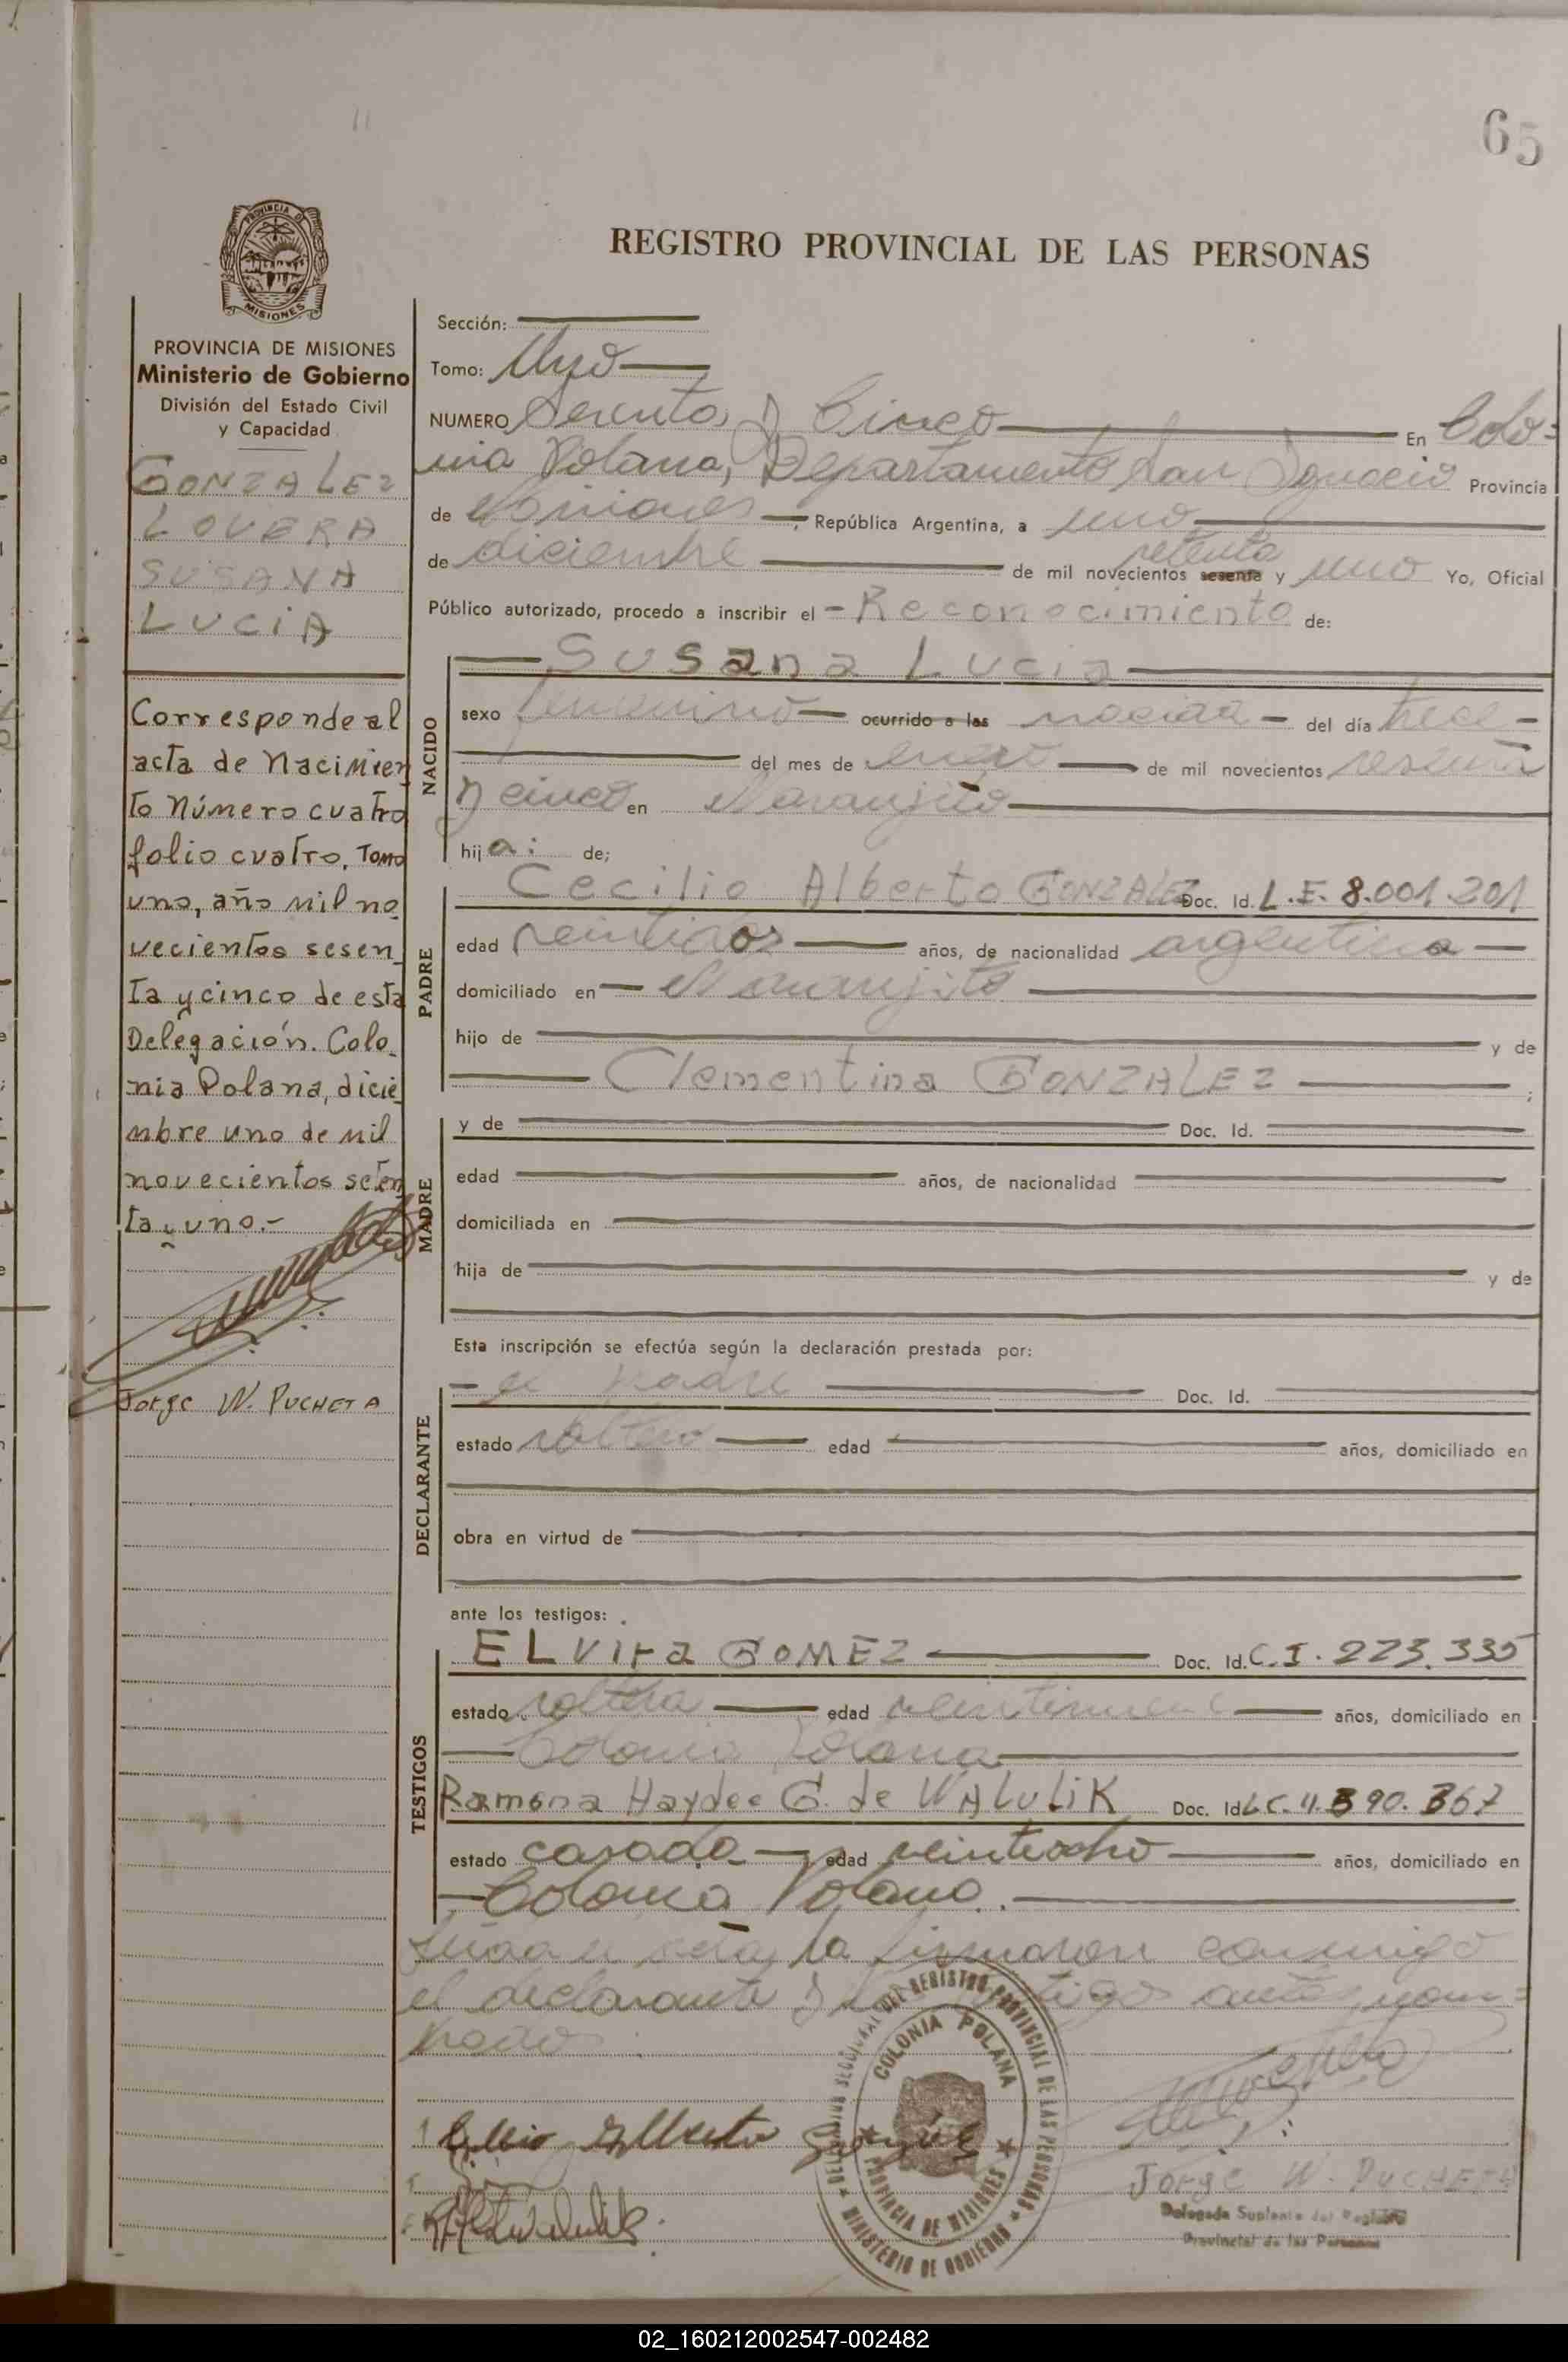 65
REGISTRO PROVINCIAL DE LAS PERSONAS
PROVINCIA DE MISIONES
Ministerio de Gobierno
División del Estado Civil
y Capacidad
GONZALEZ
LOVERA
SUSANA
LUCIA
Corresponde al
acta de Nacimien
to Número cuatro
folio cuatro, Tomo
uno, año mil no
vecientos sesen_
ta y cinco de esta
Delegación. Colo_
nia Polana, dicie_
mbre uno de mil
novecientos seten
ta y uno.-
Jorge W. PUCHETA
Sección:
Tomo: Uno
NUMERO Sesenta y Cinco En Colo=
nia Polana, Departamento San Ignacio Provincia
de Misiones, República Argentina, a uno
de diciembre de mil novecientos sesenta setenta y uno Yo, Oficial
Público autorizado, procedo a inscribir el - Reconocimiento de:
NACIDO
Susana Lucia
sexo femenino ocurrido a las nacida del día trece
del mes de enero de mil novecientos sesenta
y cinco en Naranjito
hija: de;
PADRE
Cecilio Alberto GONZALEZ Doc. Id. L.E. 8.001.201
edad veintidos años, de nacionalidad argentina
domiciliado en Naranjito
hijo de y de
Clementina GONZALEZ ;
MADRE
y de Doc. Id.
edad años, de nacionalidad
domiciliada en
hija de y de
Esta inscripción se efectúa según la declaración prestada por:
DECLARANTE
el padre Doc. Id.
estado soltero edad años, domiciliado en
obra en virtud de
ante los testigos:
TESTIGOS
ELVIra GOMEZ Doc. Id. C.I. 223.335
estado soltera edad años, domiciliado en
Colonia Polana
Ramona Haydee G. de WALULIK Doc. Id L.C. 4.390.367
estado casada edad veintiocho años, domiciliado en
Colonia Polana.
Leída el acta, la firmaron conmigo
el declarante y los testigos antes nom=
brados
Cecilio Alberto Gonzalez
Jorge W. PUCHETA
Delegado Suplente del Registro
Provincial de las Personas
DELEGACION SECCIONAL DEL REGISTRO PROVINCIAL DE LAS PERSONAS
COLONIA POLANA
PROVINCIA DE MISIONES
MINISTERIO DE GOBIERNO
02_160212002547-002482